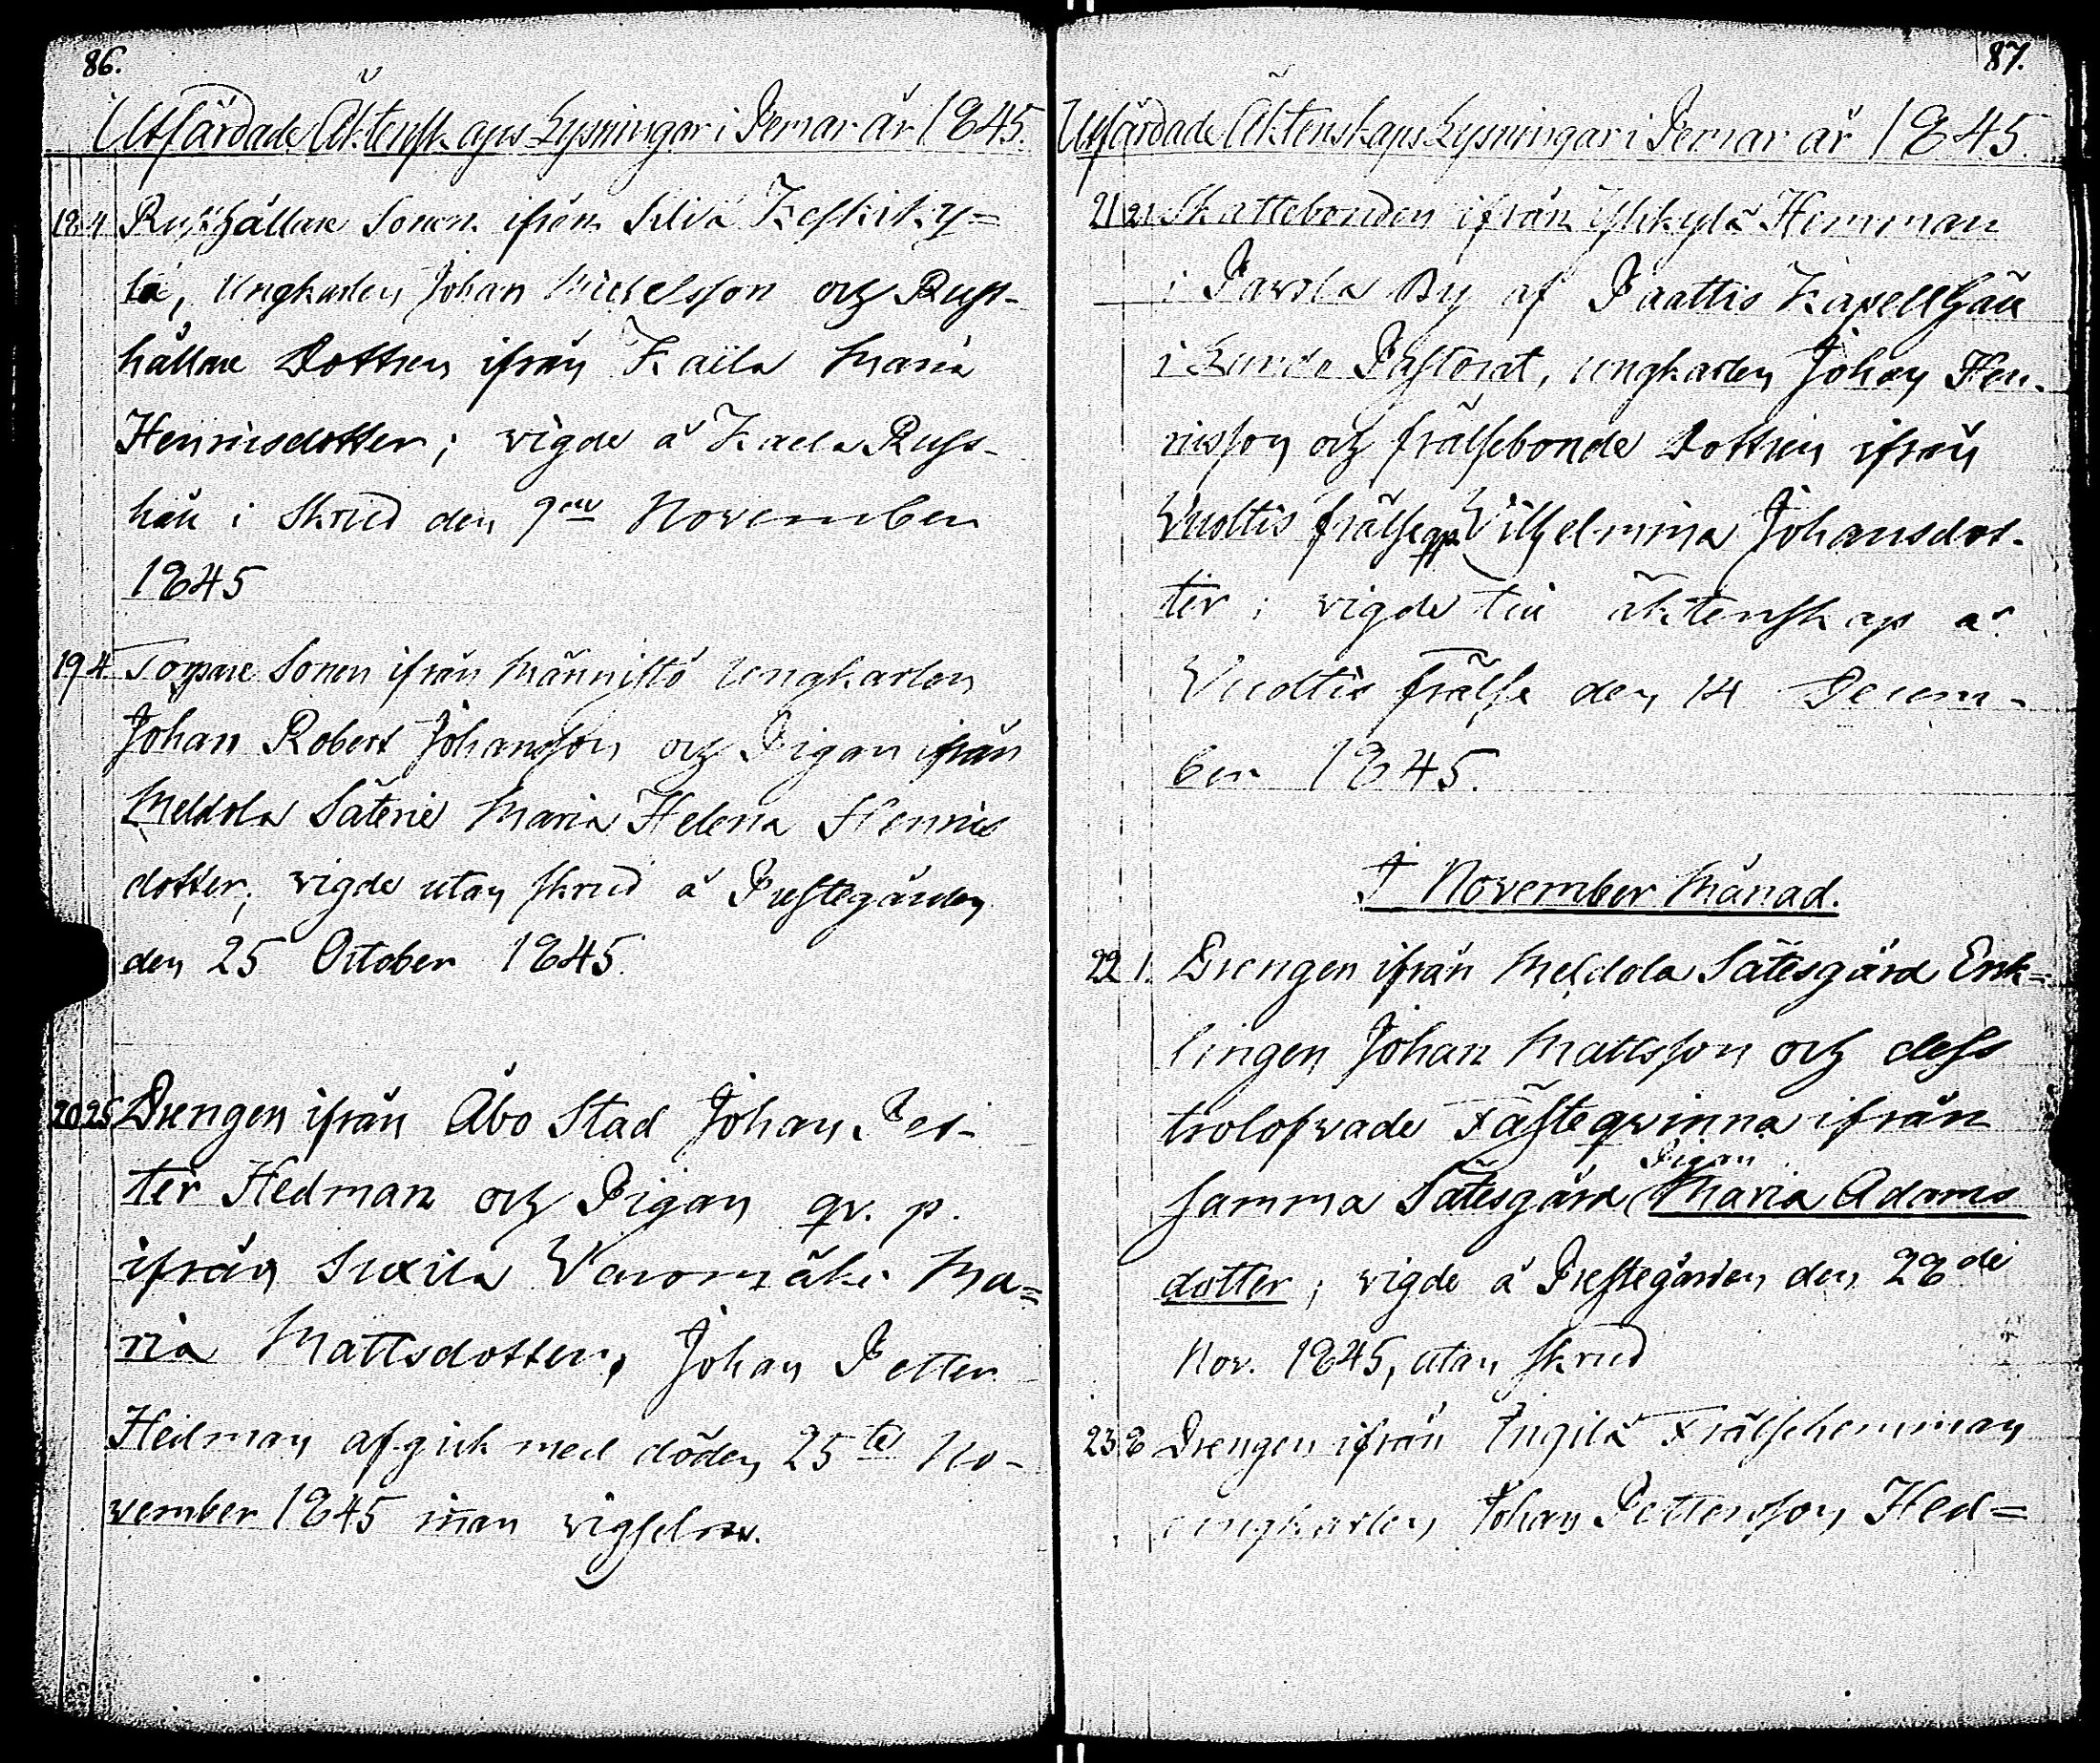 86.
Utfärdade Äktenskaps Lysningar i Pemar år 1845.
18. 4. Rusthållare Sonen ifrån Silvä Keskiky=
lä, Ungkarlen Johan Michelsson och Rust-
hållare Dottren ifrån Kaila Maria
Henricsdotter; vigde å Kaela Rust-
håll i Skrud den 9de November
1845
19. 4. Torpare Sonen ifrån Männistö Ungkarlen
Johan Robert Johansson och Pigan ifrån
Meldola Säterie Maria Helena Henrics
dotter; vigde utan skrud å Prestegården
den 25 October 1845.
20. 25. Drengen ifrån Åbo Stad Johan Pet-
ter Hedman och Pigan qv. p.
ifrån Vanomäki Ma=
ria Mattsdotter, Johan Petter
Hedman afgick med döden 25te No-
vember 1845 innan vigseln.
87.
Utfärdade Äktenskaps Lysningar i Pemar år 1845.
21. 21. Skattebonden ifrån Yliskylä Hemman
i Pavola By af Paattis Kapellgäll
i Lundo Pastorat, ungkarlen Johan Hen-
ricsson och frälsebonde Dottren ifrån
Vuoltis frälse qp. Vilhelmina Johansdot-
ter; vigde till äktenskap å
Vuoltis frälse den 14 Decem-
ber 1845.
I November Månad.
22. 1. Drengen ifrån Meldola Sätesgård Enk=
lingen Johan Mattsson och dess
trolofvade Fästeqvinna ifrån
Pigan
samma Sätesgård Maria Adams
dotter; vigde å Prestegården den 28de
Nov. 1845, utan skrud
23. 8 Drengen ifrån Ingilä Frälsehemman
ungkarlen Johan Pettersson Hed=